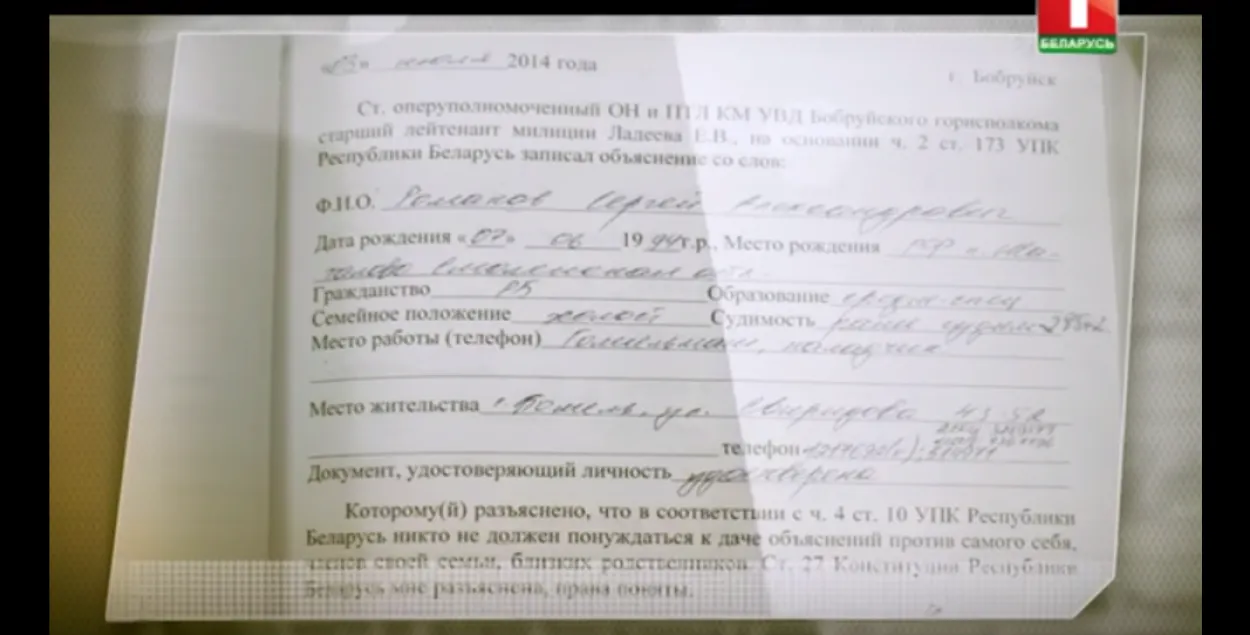 БЕЛАРУСЬ
«03» июля 2014 года
г. Бобруйск
Ст. оперуполномоченный ОН и ПТЛ КМ УВД Бобруйского горисполкома
старший лейтенант милиции Ладеева Е.В., на основании ч. 2 ст. 173 УПК
Республики Беларусь записал объяснение со слов:
Ф.И.О. Романов Сергей Александрович
Дата рождения «07» 06 1994 г.р., Место рождения
Смоленская обл.
Гражданство РБ Образование средн-спец
Семейное положение холост Судимость ранее судим
Место работы (телефон) наладчик
Место жительства г. Гомель, ул. Свиридова
телефон
Документ, удостоверяющий личность удостоверена
Которому(й) разъяснено, что в соответствии с ч. 4 ст. 10 УПК Республики
Беларусь никто не должен понуждаться к даче объяснений против самого себя,
членов своей семьи, близких родственников. Ст. 27 Конституции Республики
Беларусь мне разъяснена, права поняты.